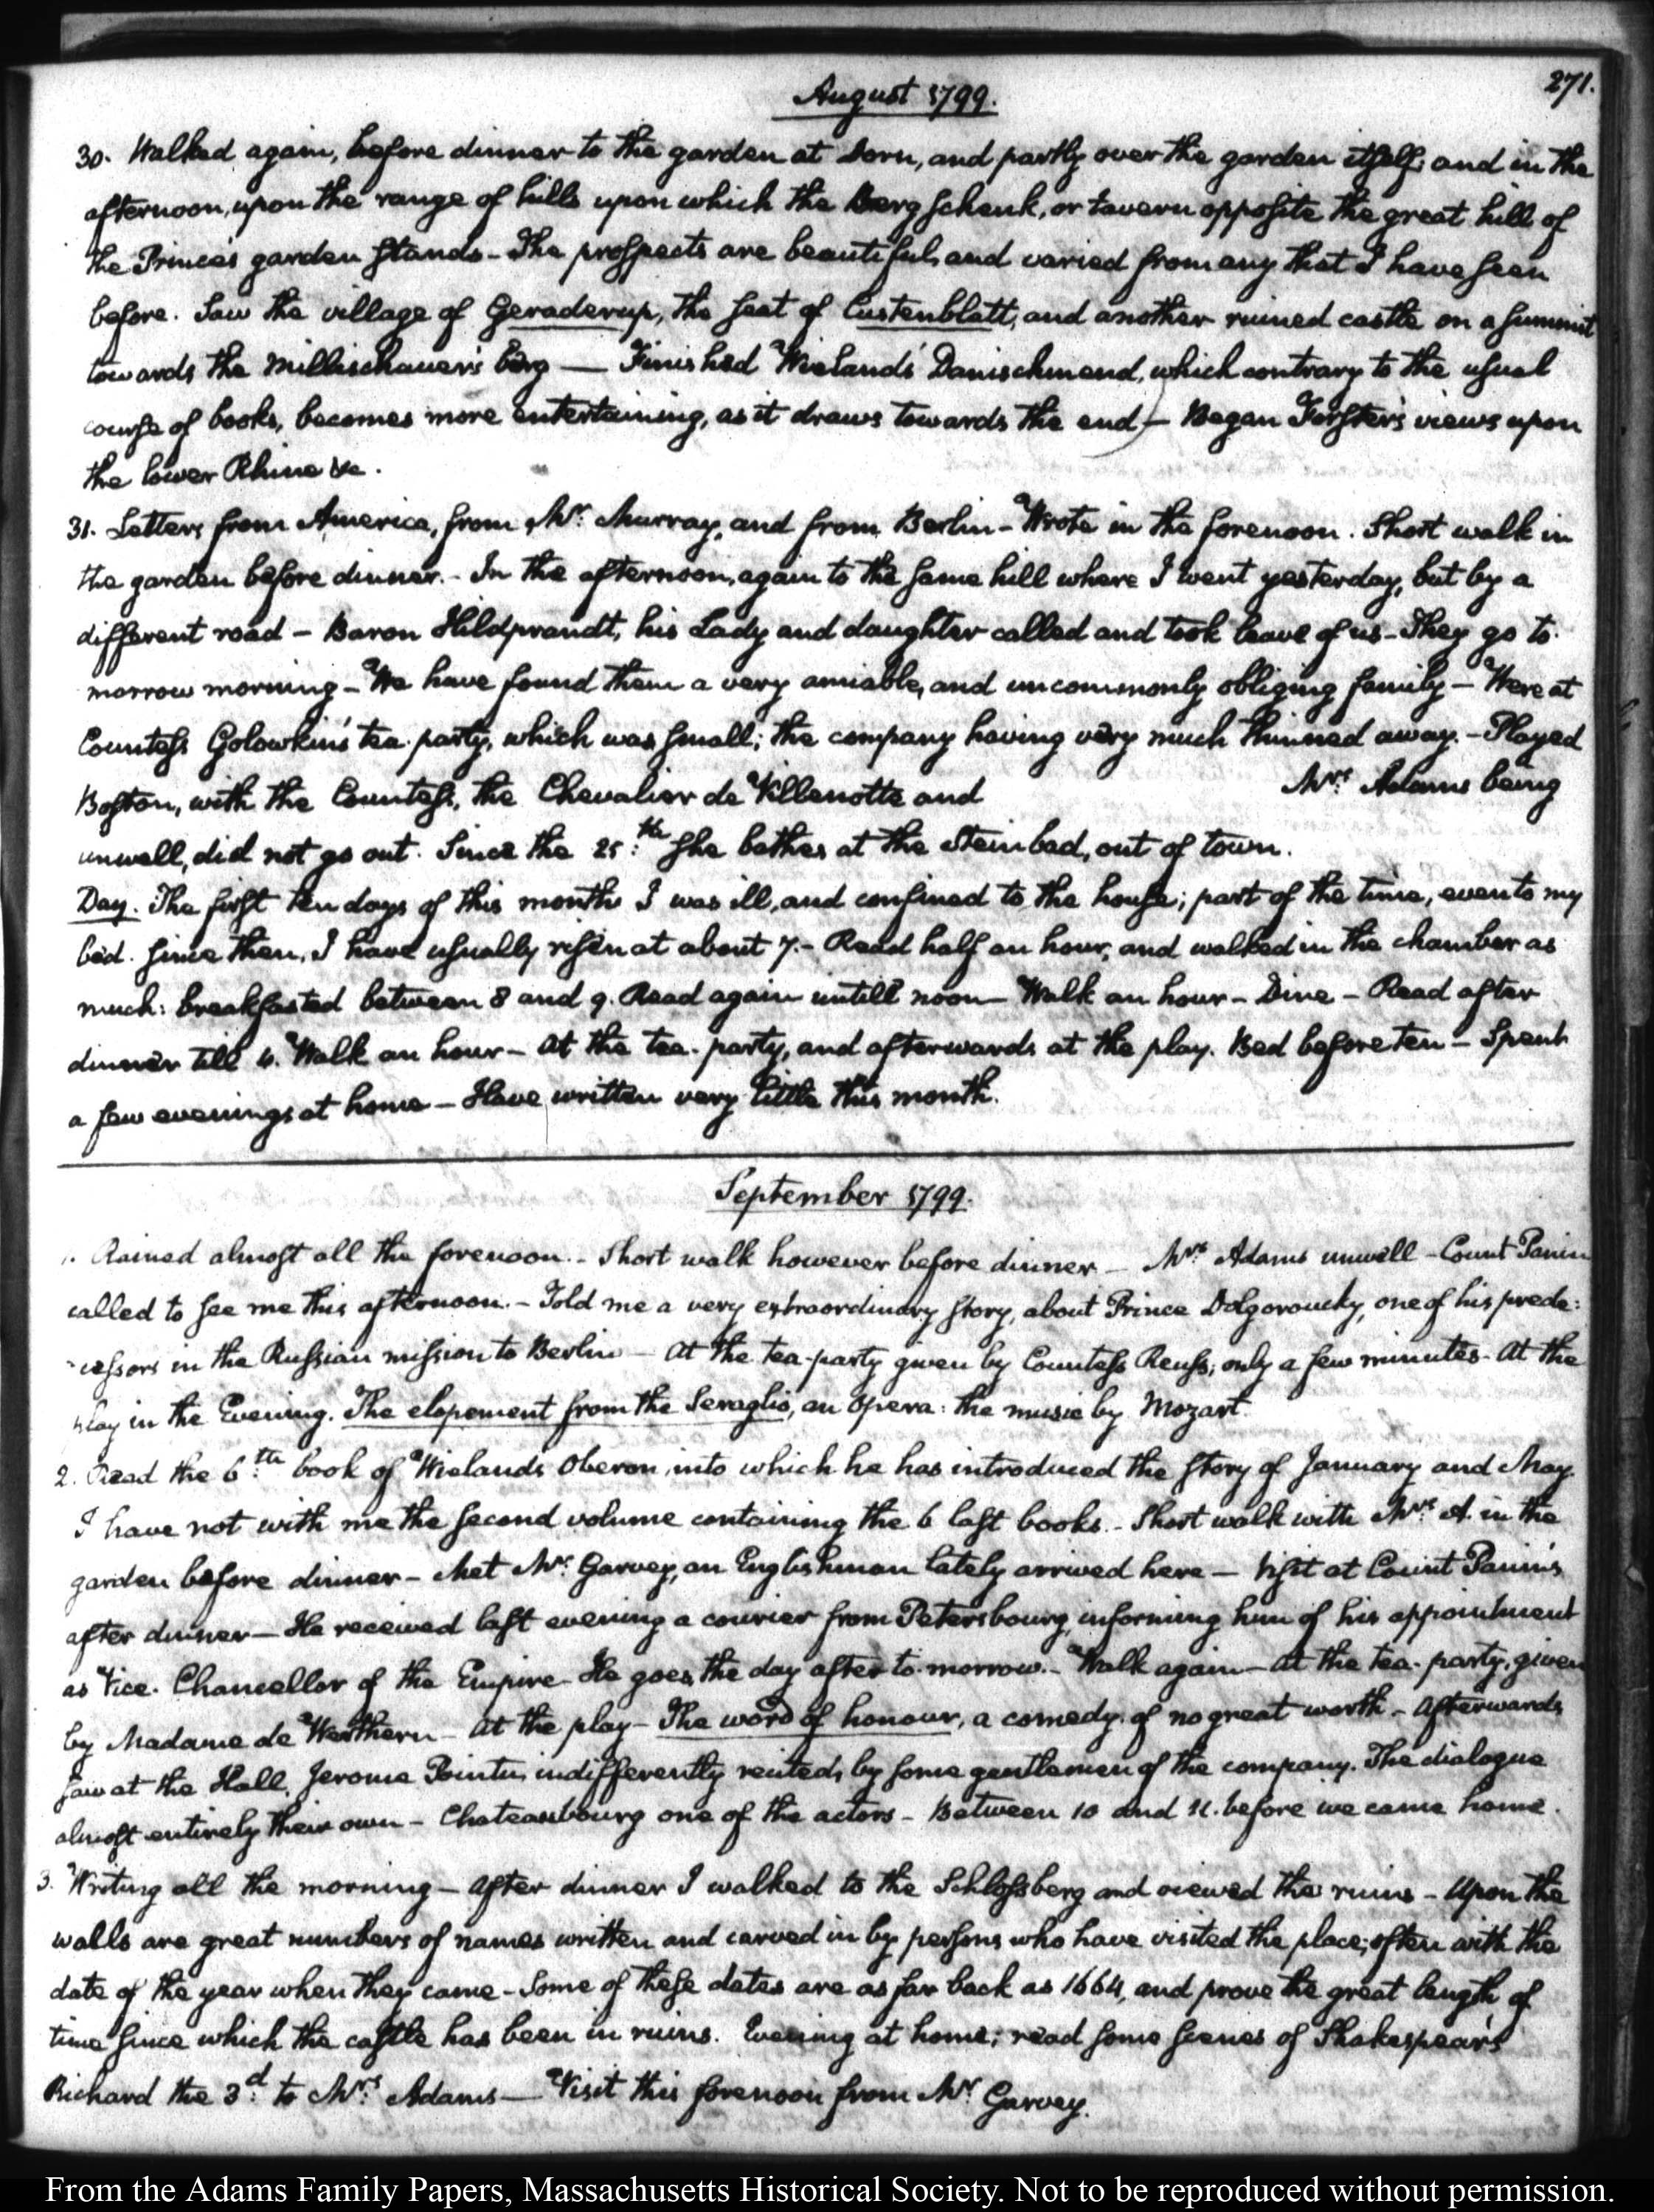 271.
August 1799.
30. Walked again, before dinner to the garden at Dorn, and partly over the garden itself; and in the
afternoon, upon the range of hills upon which the Bergschenk, or tavern opposite the great hill of
the Prince's garden stands - The prospects are beautiful, and varied from any that I have seen
before. Saw the village of Geraderup, the seat of Custenblatt, and another ruined castle on a summit
towards the Millischauer's berg — Finished Wieland's Danischmend, which contrary to the usual
course of books, becomes more entertaining, as it draws towards the end — Began Forster's views upon
the lower Rhine &c.
31. Letters from America, from Mr. Murray, and from Berlin - Wrote in the forenoon. Short walk in
the garden before dinner. - In the afternoon, again to the same hill where I went yesterday, but by a
different road - Baron Hildprandt, his Lady and daughter called and took leave of us - They go to-
morrow morning - We have found them a very amiable, and uncommonly obliging family - Were at
Countess Golowkin's tea-party, which was small; the company having very much thinned away. - Played
Boston, with the Countess, the Chevalier de Villenotte and Mrs. Adams being
unwell, did not go out. Since the 25:th she bathes at the Steinbad, out of town.
Day. The first ten days of this month I was ill, and confined to the house; part of the time, even to my
bed. Since then, I have usually risen at about 7. - Read half an hour, and walked in the chamber as
much: breakfasted between 8 and 9. Read again untill noon - Walk an hour - Dine - Read after
dinner till 6. Walk an hour - At the tea-party, and afterwards at the play. Bed before ten - Spent
a few evenings at home - Have written very little this month.
September 1799.
1. Rained almost all the forenoon. - Short walk however before dinner - Mrs. Adams unwell - Count Panin
called to see me this afternoon. - Told me a very extraordinary story, about Prince Dolgoroucky, one of his prede:
cessors in the Russian mission to Berlin - At the tea-party given by Countess Reuss; only a few minutes - At the
play in the Evening. The elopement from the Seraglio, an Opera: the music by Mozart.
2. Read the 6:th book of Wieland's Oberon, into which he has introduced the story of January and May.
I have not with me the second volume containing the 6 last books. - Short walk with Mrs. A. in the
garden before dinner - Met Mr. Garvey, an Englishman lately arrived here - Visit at Count Panin's
after dinner - He received last evening a courier from Petersbourg, informing him of his appointment
as Vice-Chancellor of the Empire - He goes the day after to-morrow. - Walk again - At the tea-party, given
by Madame de Werthern - At the play - The word of honour, a comedy of no great worth - Afterwards
saw at the Hall, Jerome Pointu, indifferently recited, by some gentlemen of the company. The dialogue
almost entirely their own - Chateaubourg one of the actors - Between 10 and 11. before we came home.
3. Writing all the morning - After dinner I walked to the Schlossberg and viewed the ruins - Upon the
walls are great numbers of names written and carved in by persons who have visited the place; often with the
date of the year when they came - Some of these dates are as far back as 1664, and prove the great length of
time since which the castle has been in ruins. Evening at home; read some scenes of Shakespear's
Richard the 3:d to Mrs. Adams - Visit this forenoon from Mr. Garvey.
From the Adams Family Papers, Massachusetts Historical Society. Not to be reproduced without permission.